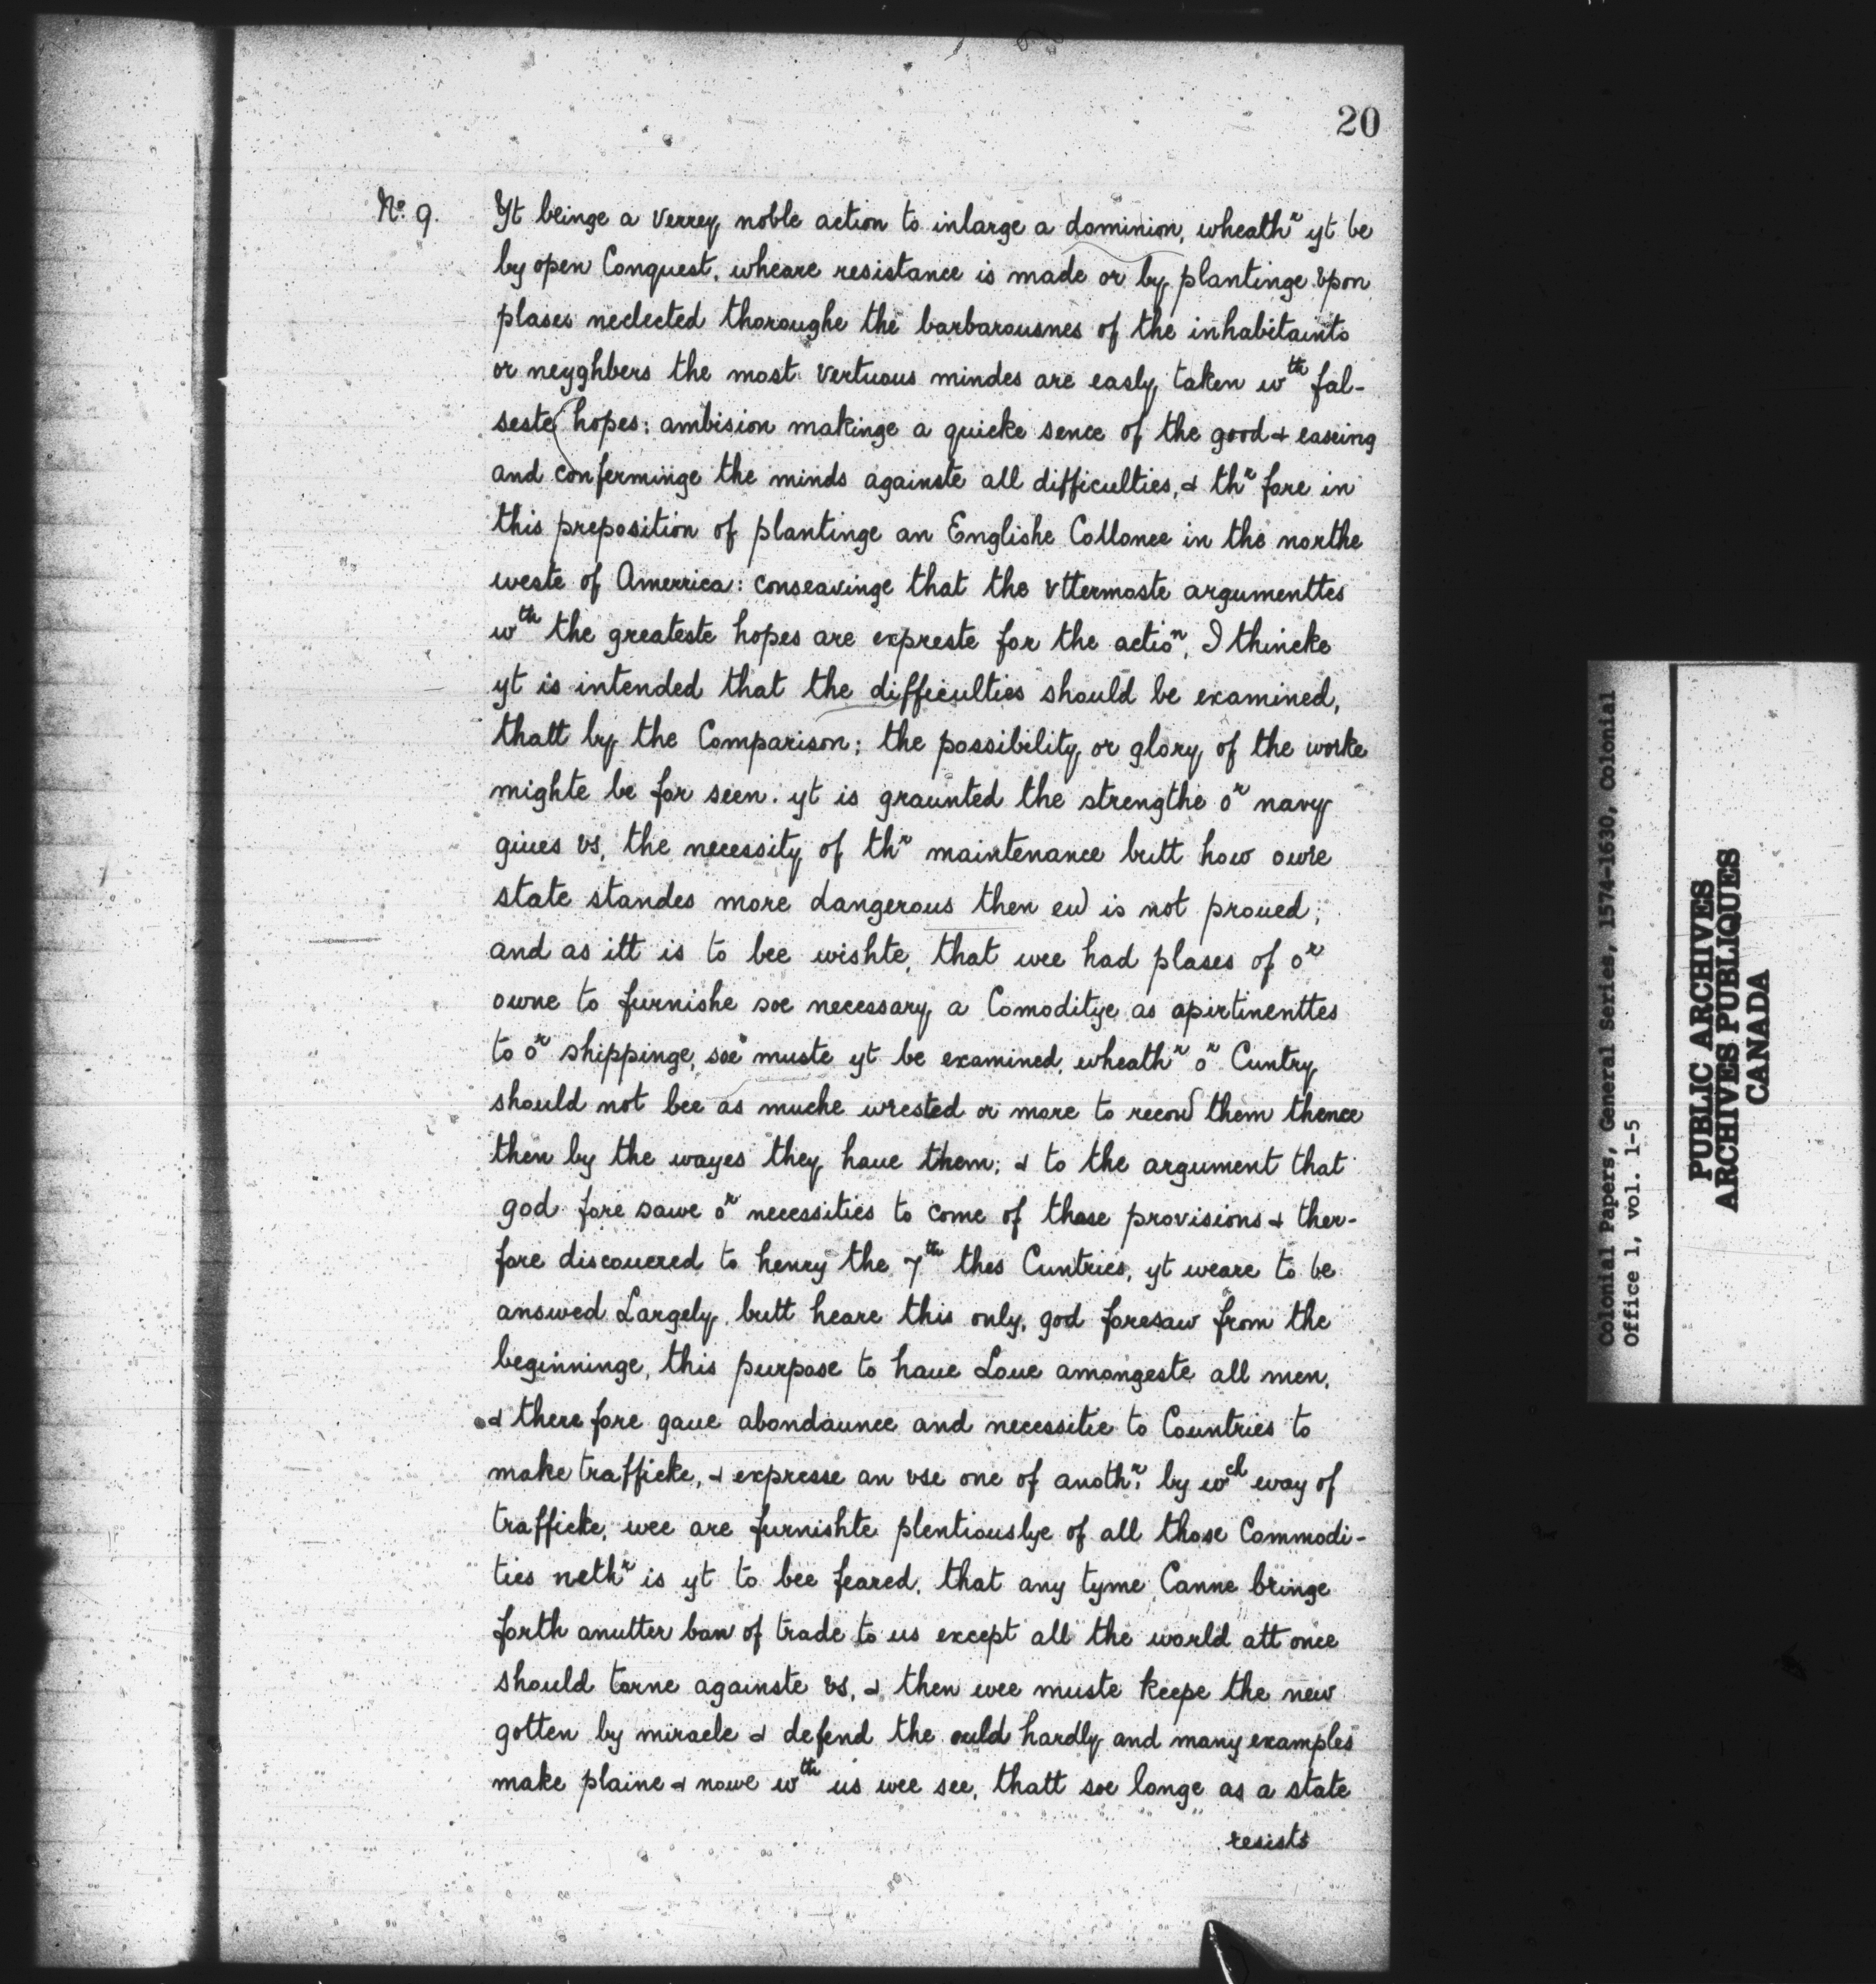 20
No. 9.
Yt beinge a verrey noble action to inlarge a dominion, wheathr yt be
by open Conquest, wheare resistance is made or by plantinge vpon
plases neclected thoroughe the barbarousnes of the inhabitaints
or neyghbers the most vertuous mindes are easly taken wth fal-
seste hopes: ambision makinge a quicke sence of the good & easeing
and conferminge the minds againste all difficulties, & thr fore in
this preposition of plantinge an Englishe Collonee in the northe
weste of Amerrica: conseavinge that the vttermoste argumenttes
wth the greateste hopes are expreste for the action, I thincke
yt is intended that the difficulties should be examined,
thatt by the Comparison; the possibility or glory of the worke
mighte be for seen. yt is graunted the strengthe or navy
giues vs, the necessity of thr maintenance butt how owre
state standes more dangerous then eu is not proued;
and as itt is to bee wishte, that wee had plases of or
owne to furnishe soe necessary a Comoditye as apirtinenttes
to or shippinge, soe muste yt be examined, wheathr or Cuntry
should not bee as muche wrested or more to recou them thence
then by the wayes they haue them; & to the argument that
god fore sawe or necessities to come of those provisions & ther-
fore discouered to henry the 7th thes Cuntries, yt weare to be
answed Largely, butt heare this only, god foresaw from the
beginninge, this purpose to haue Loue amongeste all men,
& there fore gaue abondaunce and necessitie to Countries to
make trafficke, & expresse an vse one of anothr, by wch way of
trafficke, wee are furnishte plentiouslye of all those Commodi-
ties nethr is yt to bee feared, that any tyme Canne bringe
forth anutter ban of trade to us except all the world att once
should torne againste vs, & then wee muste keepe the new
gotten by miracle & defend the ould hardly and many examples
make plaine & nowe wth us wee see, thatt soe longe as a state
resists
Colonial Papers, General Series, 1574-1630, Colonial
Office 1, vol. 1-5
PUBLIC ARCHIVES
ARCHIVES PUBLIQUES
CANADA